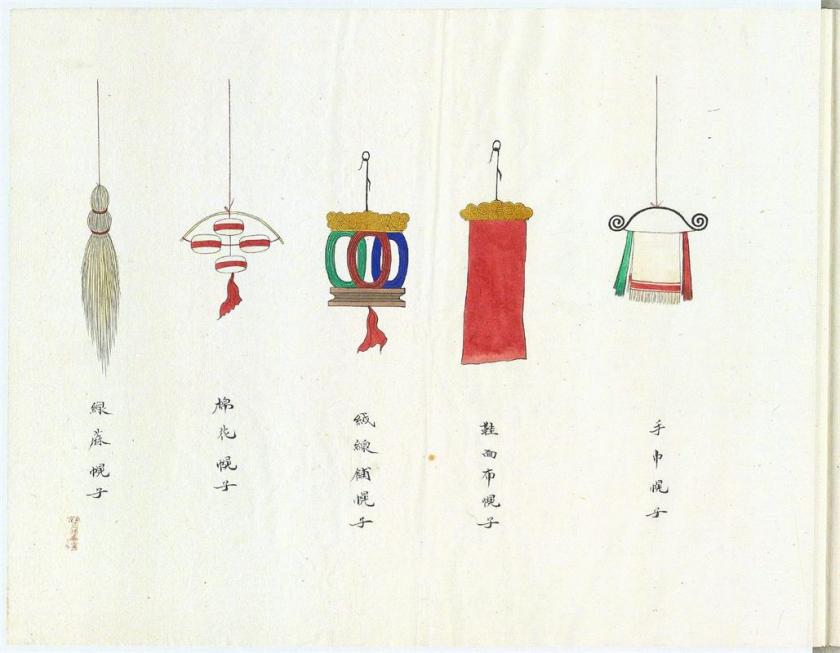 手巾幌子
鞋面布幌子
絨線鋪幌子
棉花幌子
線蔴幌子